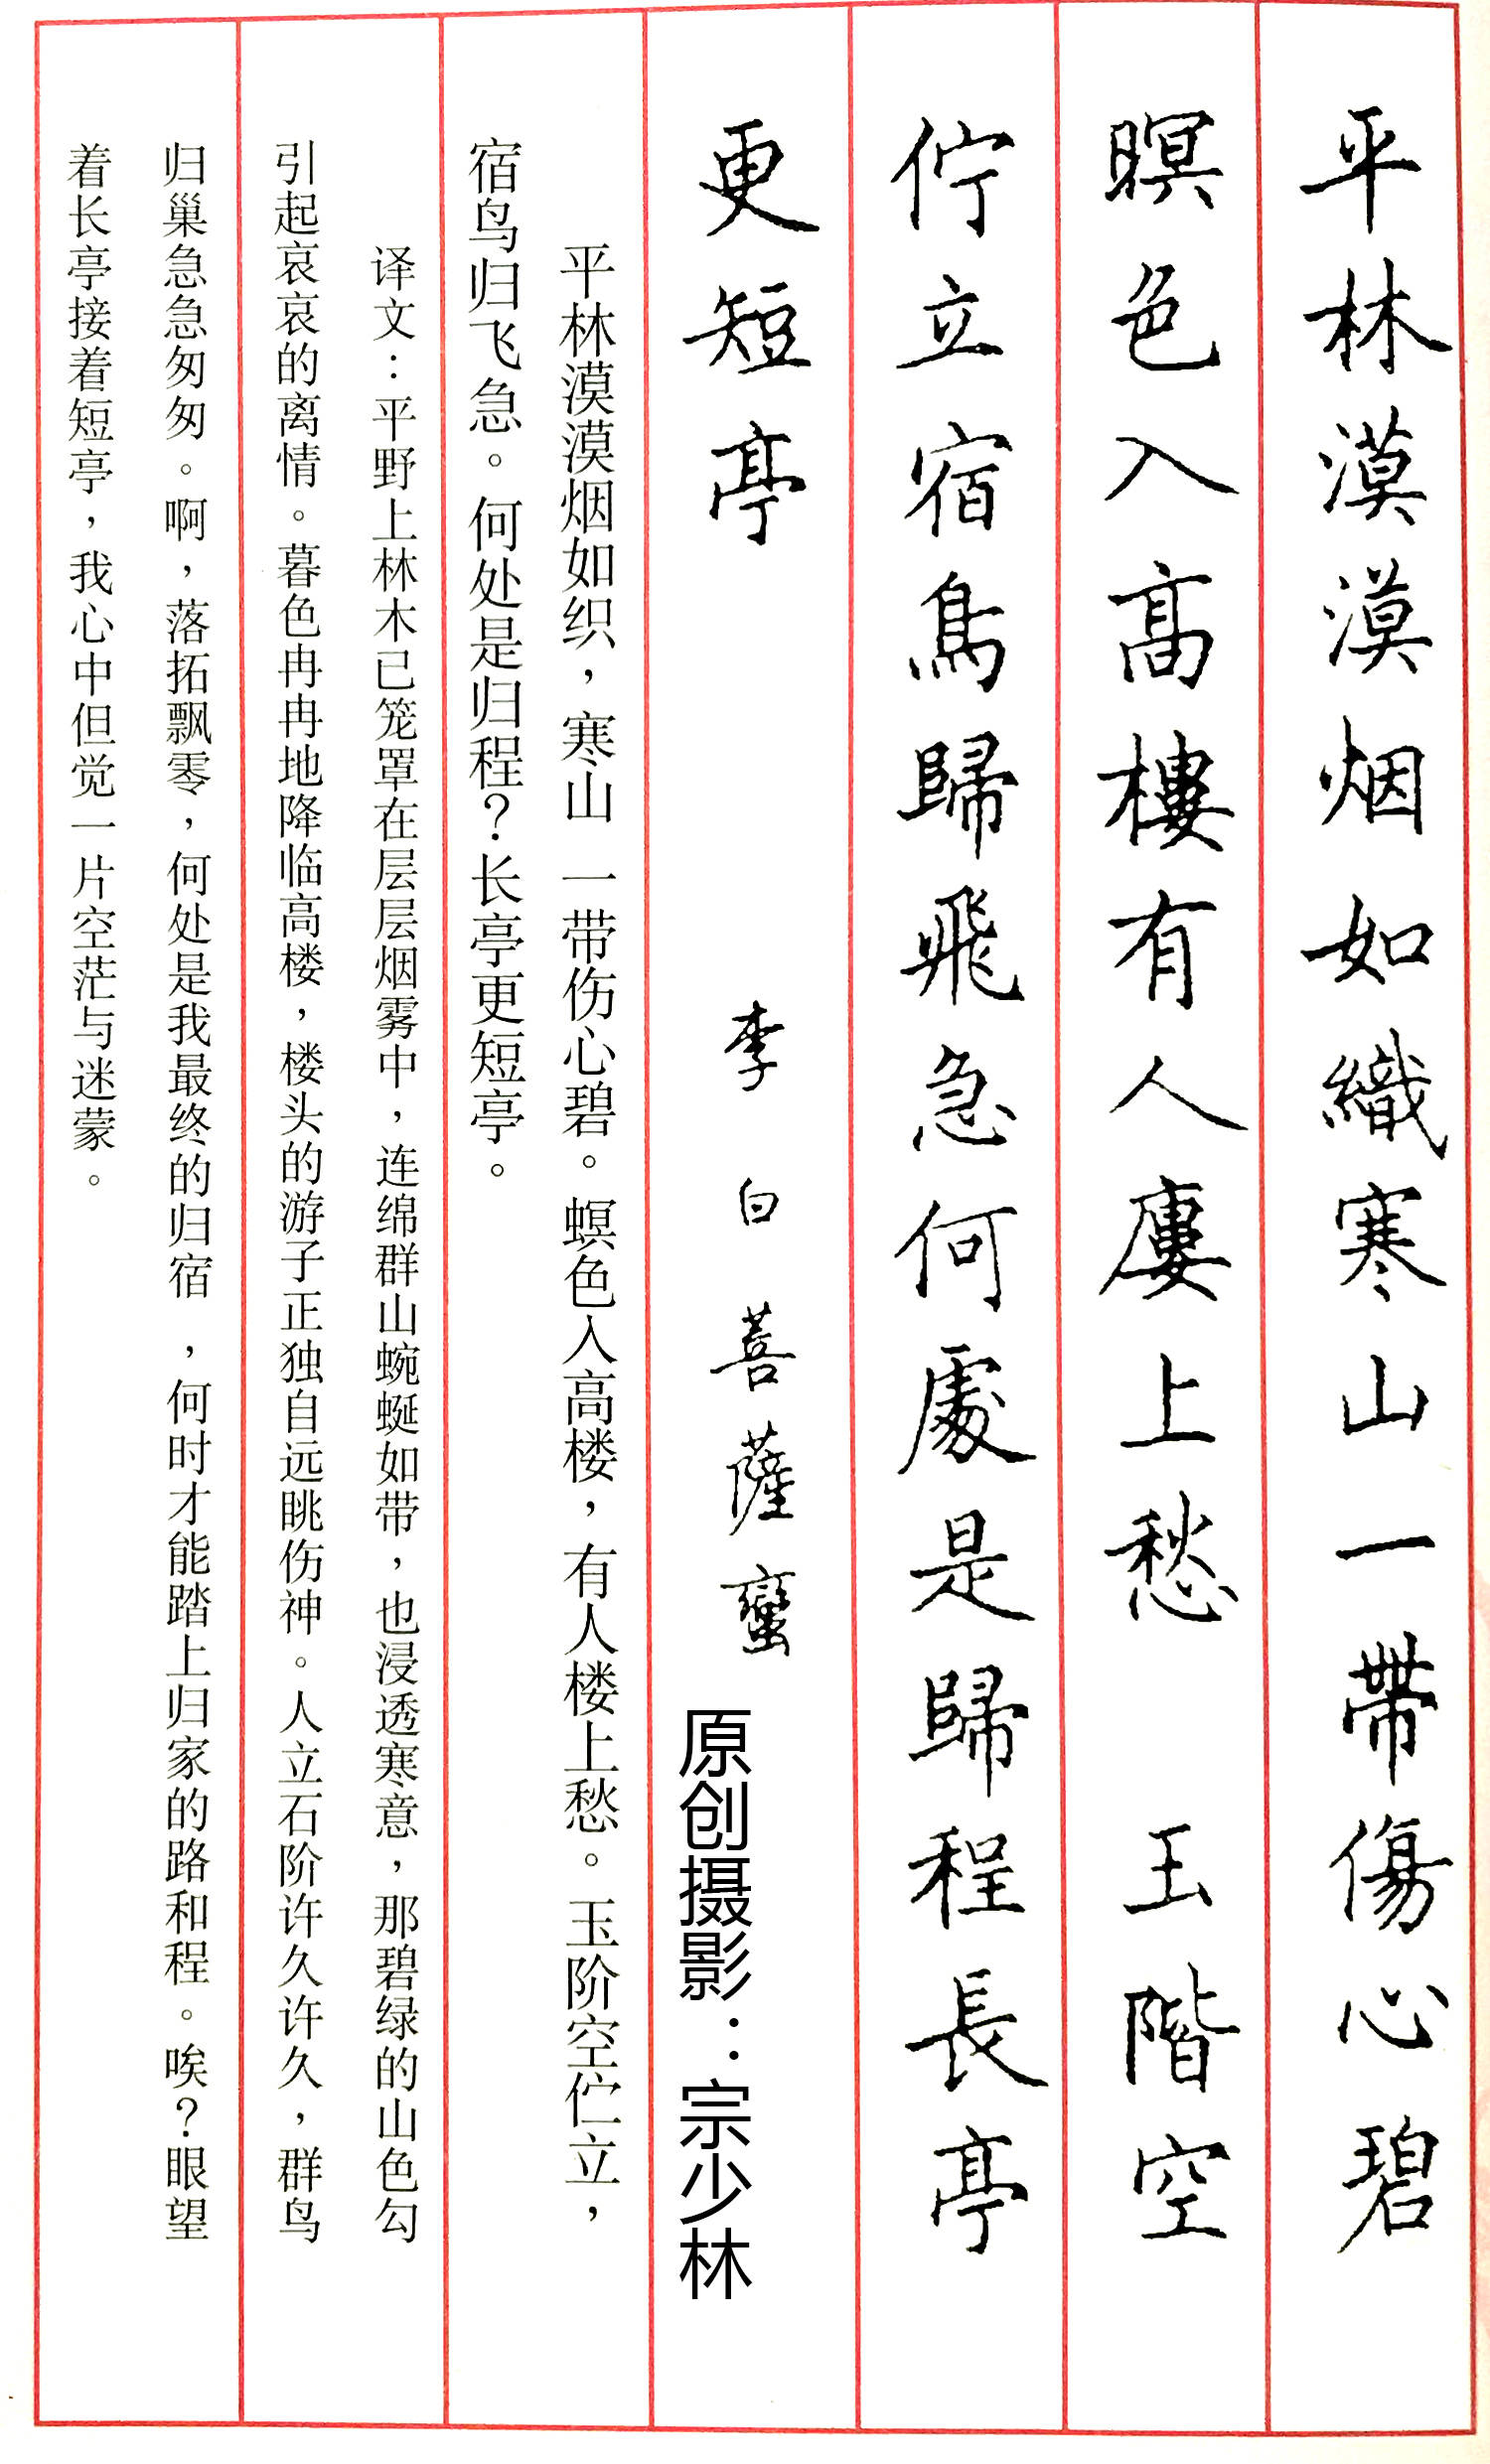 平林漠漠烟如織寒山一帶傷心碧
暝色入高樓有人廔上愁　玉階空
佇立宿鳥歸飛急何處是歸程長亭
更短亭　李白菩薩蠻
原创摄影：宗少林
平林漠漠烟如织，寒山一带伤心碧。螟色入高楼，有人楼上愁。玉阶空伫立，
宿鸟归飞急。何处是归程？长亭更短亭。
译文：平野上林木已笼罩在层层烟雾中，连绵群山蜿蜒如带，也浸透寒意，那碧绿的山色勾
引起哀哀的离情。暮色冉冉地降临高楼，楼头的游子正独自远眺伤神。人立石阶许久许久，群鸟
归巢急急匆匆。啊，落拓飘零，何处是我最终的归宿，何时才能踏上归家的路和程。唉？眼望
着长亭接着短亭，我心中但觉一片空茫与迷蒙。